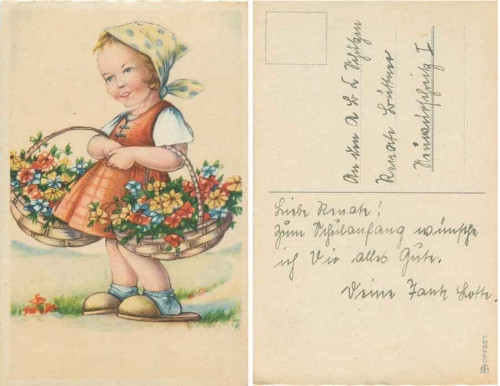 An den A B C Schützen
Renate Büttner
Liebe Renate!
Zum Schulanfang wünsche
ich Dir alles Gute.
Deine Tante Lotte.
OFFSET